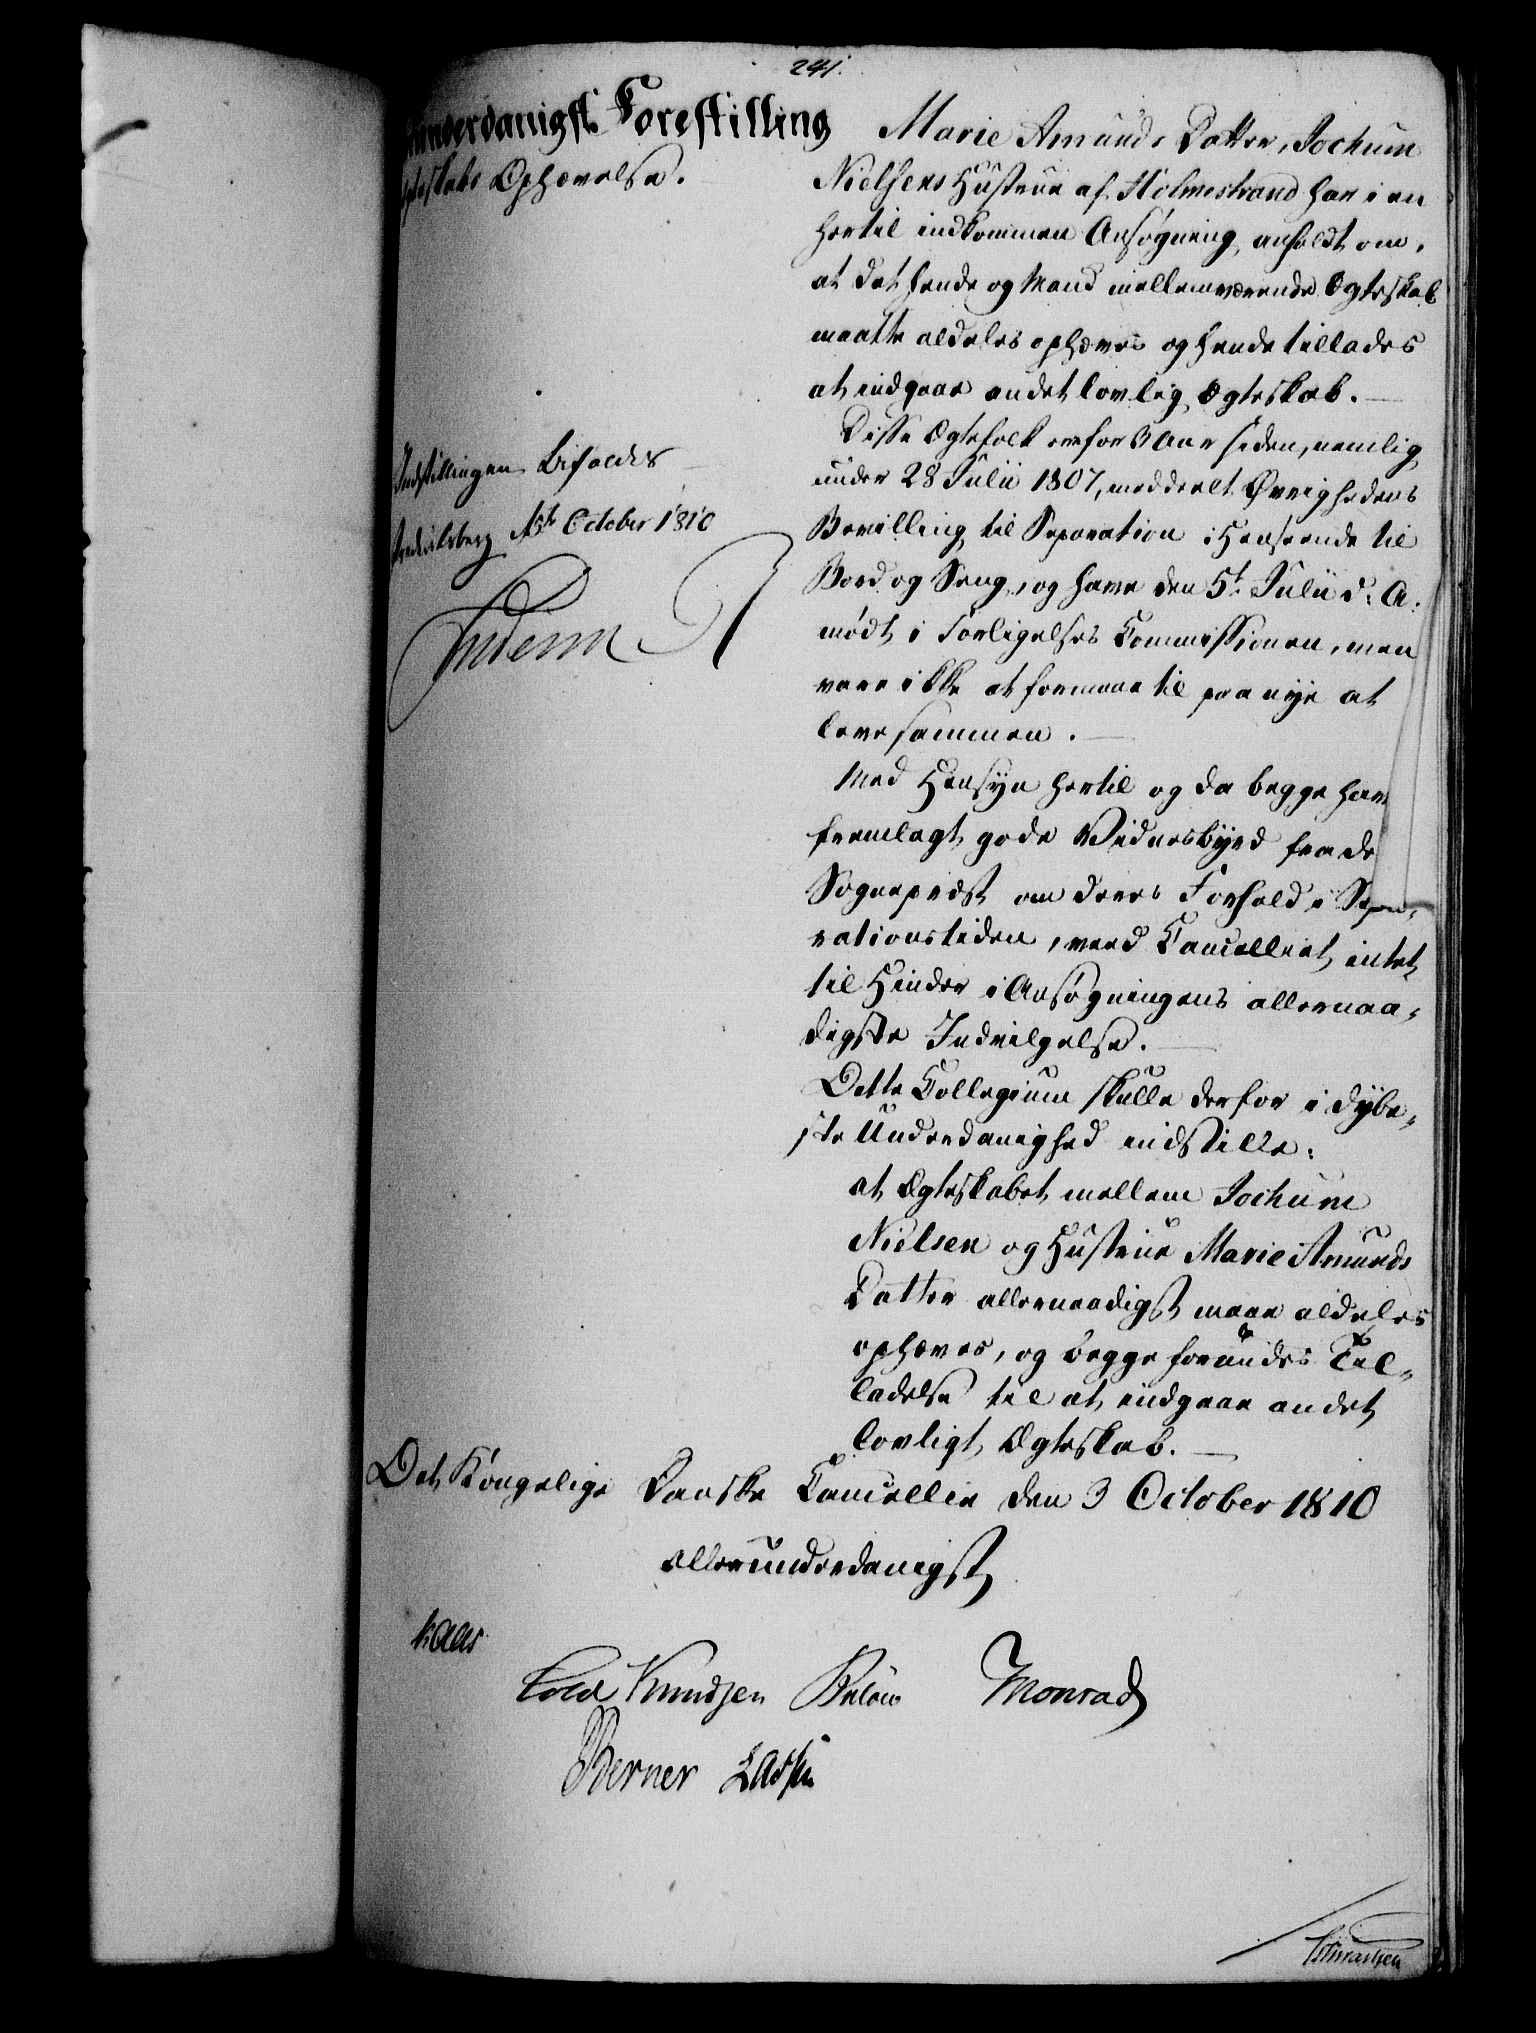 241.
underdanigst Forestilling
Ægteskabs Ophævelse.
Indstillingen bifaldes
Frederiksberg October 1810
Marie Amunds Datter, Jochum
Nielsens Hustrue af Holmestrand har i en
hertil indkommen Ansøgning anholdt om,
at det hende og Mand mellemværende Ægteskab
maatte aldeles ophæves og hende tillades
at indgaae andet lovlig Ægteskab.
Disse Ægtefolk ere for 3 Aar siden, nemlig
under 28 Julii 1807, meddeelt Øvrighedens
Bevilling til Separation i Henseende til
Bord og Seng, og have den 5t Julii d: A:
mødt i Forligelses Commissionen, men
vare ikke at formaae til paa nye at
leve sammen.
Med Hensyn hertil og da begge have
fremlagt gode Vidnesbyrd fra de
Sognepræst om deres Forhold i Sepa-
rationstiden, veed Cancelliet intet
til Hinder i Ansøgningens allernaa-
digste Indvilgelse.
Dette Collegium skulle derfor i dybe-
ste Underdanighed indstille:
at Ægteskabet mellem Jochum
Nielsen og Hustrue Marie Amunds
Datter allernaadigst maae aldeles
ophæves, og begge forundes Til-
ladelse til at indgaae andet
lovligt Ægteskab.
Det Kongelige Danske Cancellie den 3 October 1810
allerunderdanigst
Kaas
Cold Knudsen Bülow Monrad
Berner Lassen